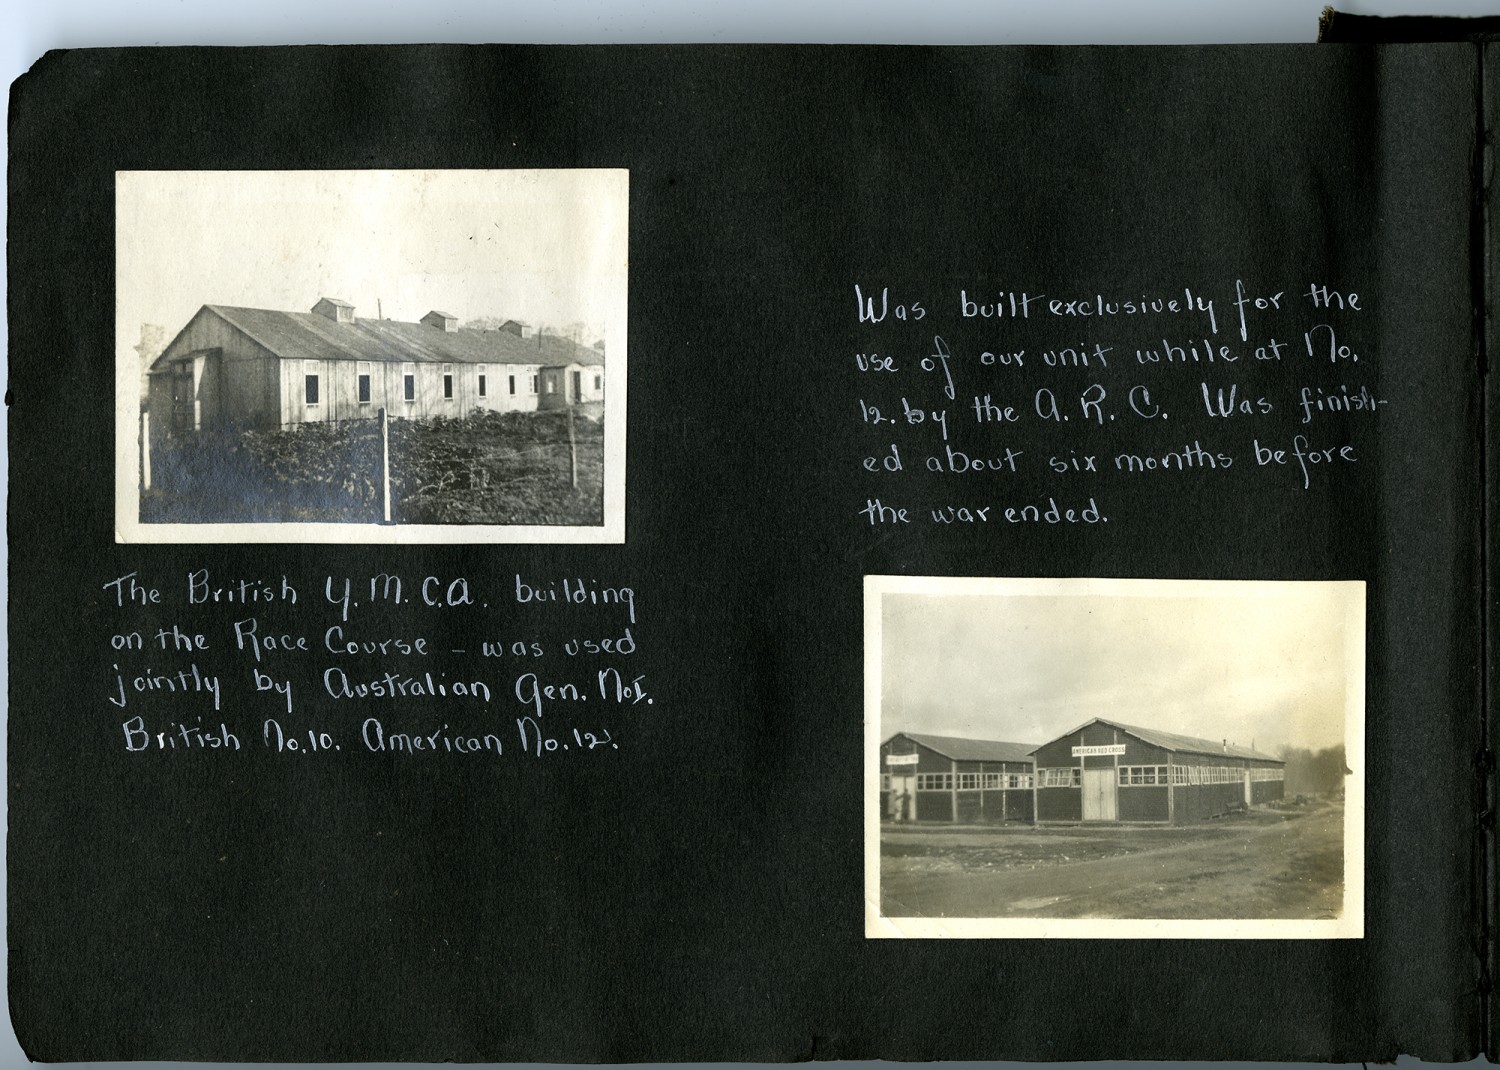 The British Y.M.C.A. building
on the Race Course - was used
jointly by Australian Gen. No I.
British No.10. American No.12.
Was built exclusively for the
use of our unit while at No.
12. by the A.R.C. Was finish-
ed about six months before
the war ended.
AMERICAN RED CROSS